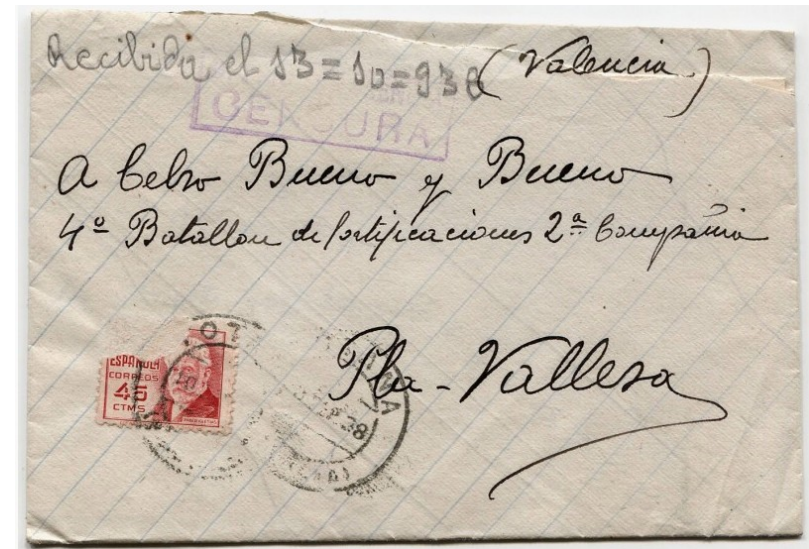 Recibida el 13=10=938 (Valencia)
CENSURA
A Celso Bueno y Bueno
4º Batallon de fortificaciones 2ª Compañia
Pla-Vallesa
ESPAÑOLA
CORREOS
45
CTMS
38